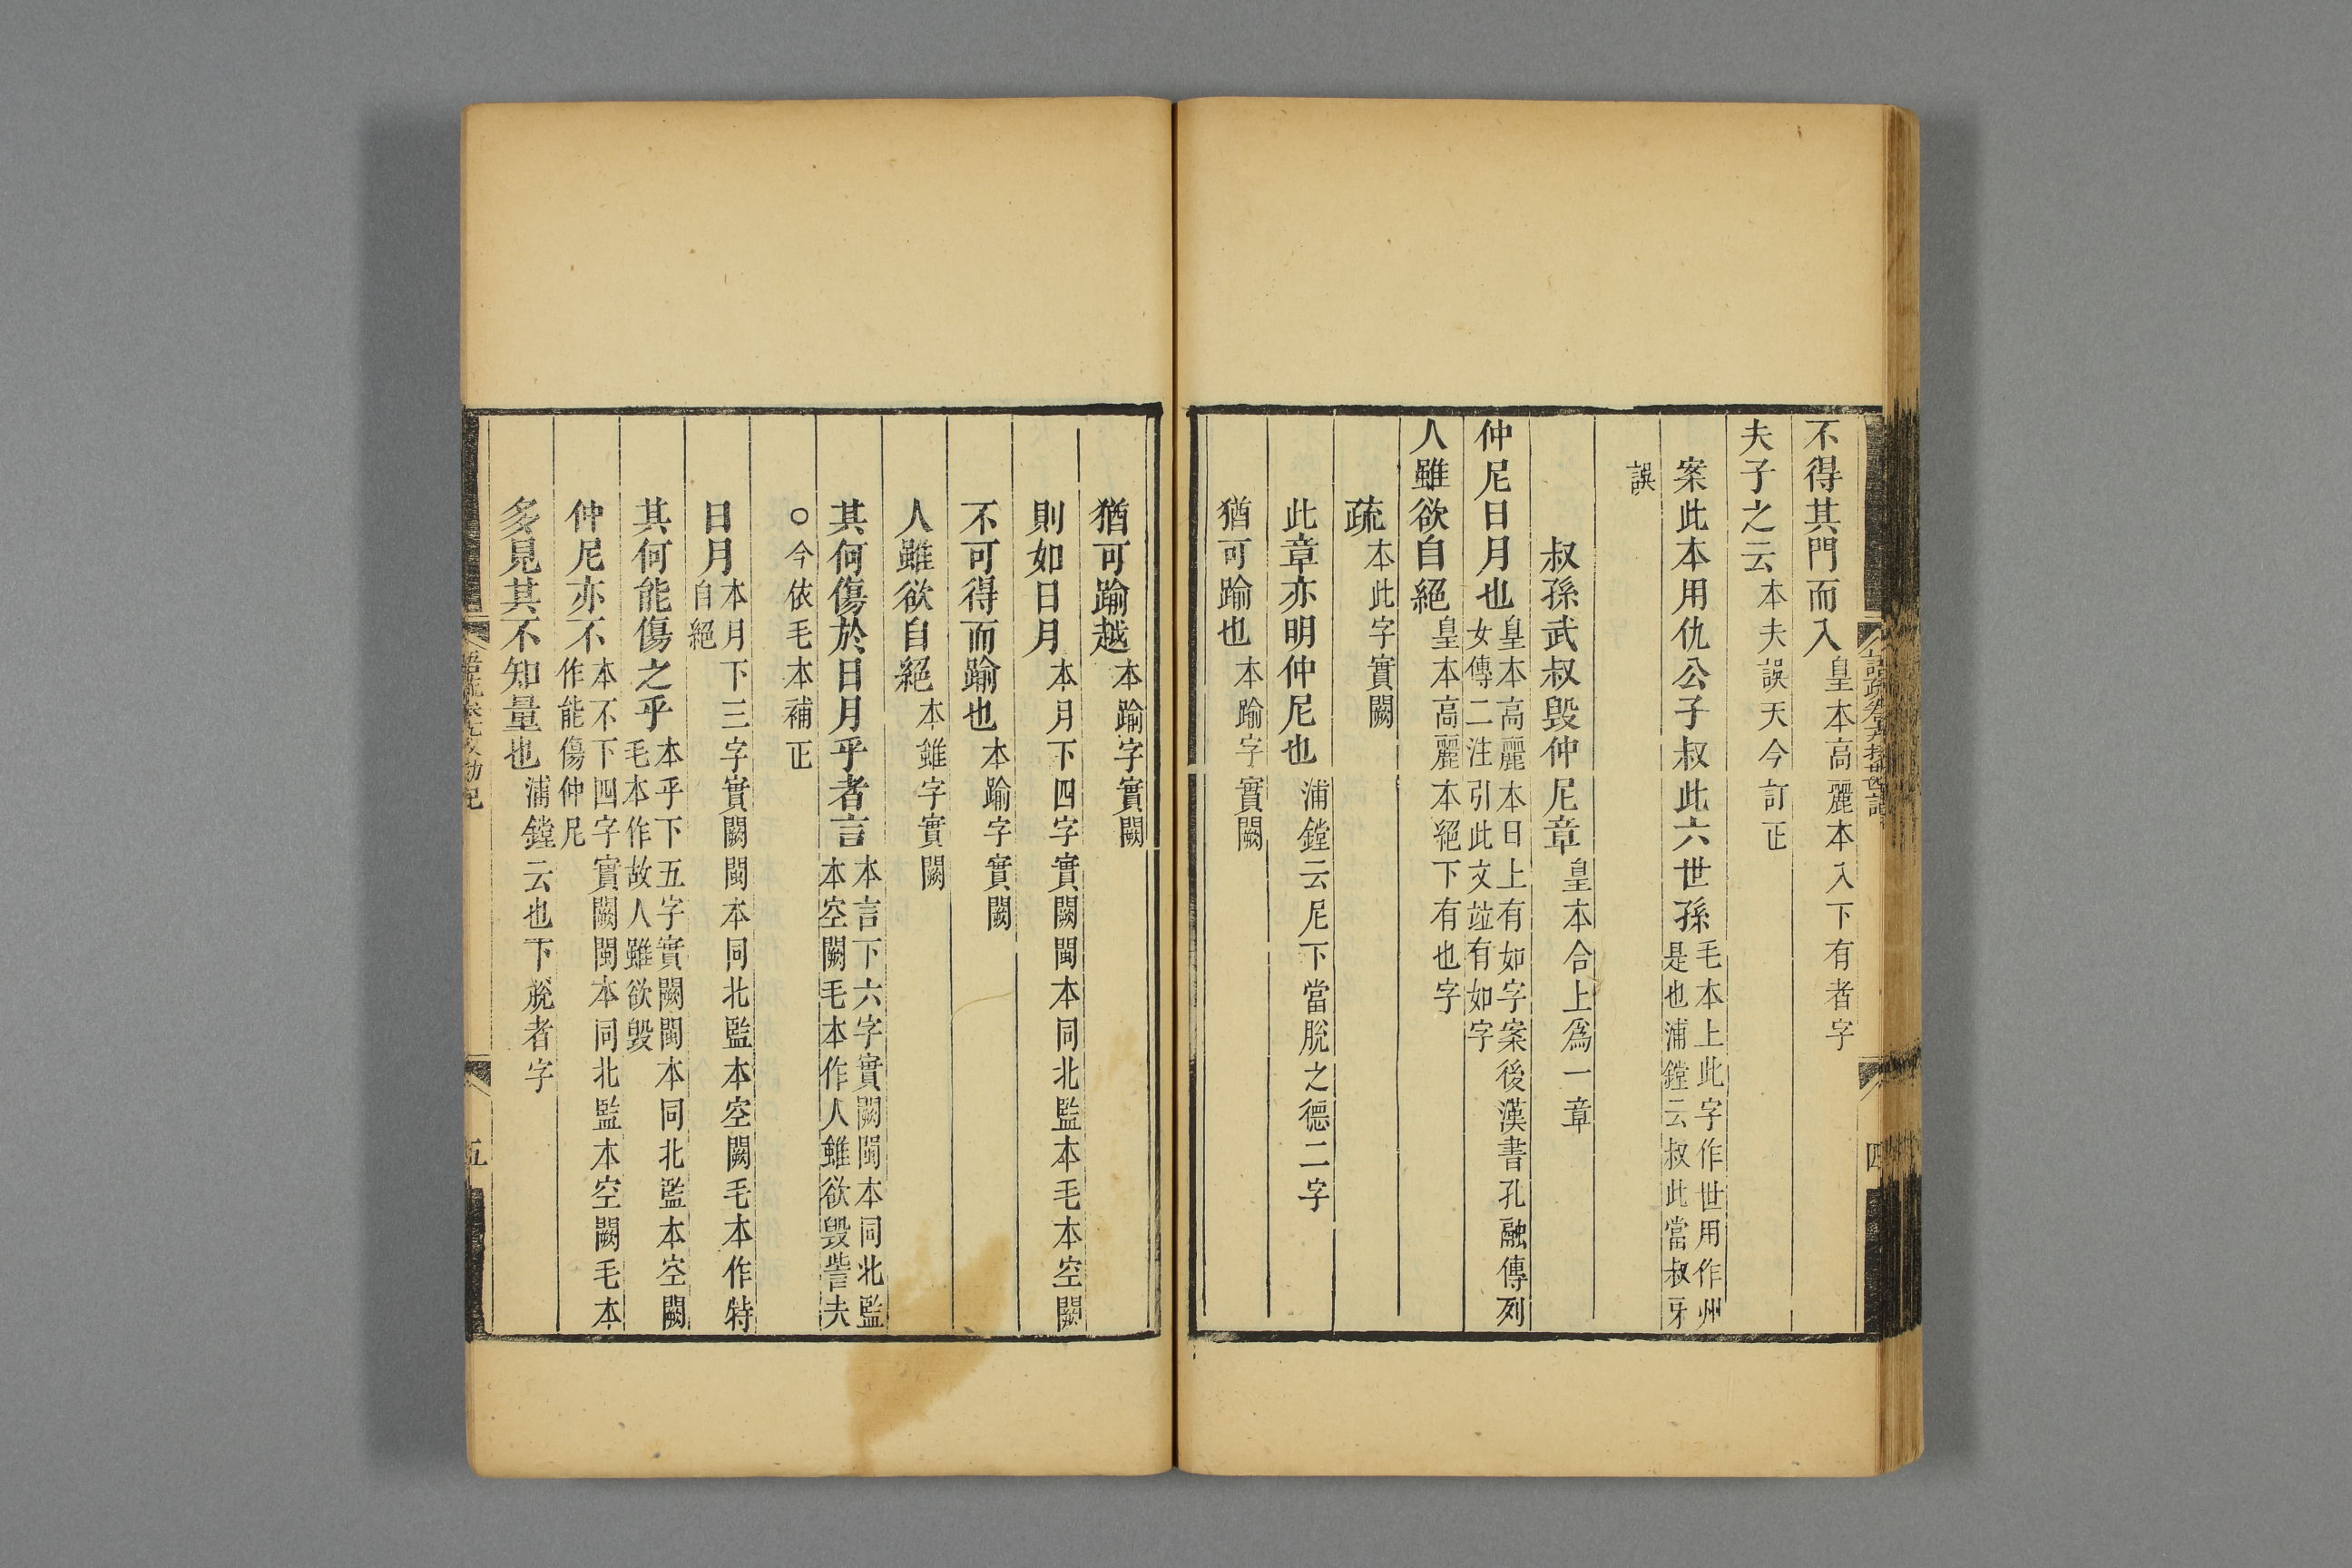 不得其門而入皇本高麗本入下有者字
夫子之云本夫誤天今訂正
案此本用仇公子叔此六世孫毛本上此字作世用作州是也浦鏜云叔此當叔牙
誤
叔孫武叔毀仲尼章皇本合上爲一章
仲尼日月也皇本高麗本日上有如字案後漢書孔融傳列女傳二注引此文竝有如字
人雖欲自絕皇本高麗本絕下有也字
疏本此字實闕
此章亦明仲尼也浦鏜云尼下當脫之德二字
猶可踰也本踰字實闕
語疏卷十九校勘記
四
猶可踰越本踰字實闕
則如日月本月下四字實闕閩本同北監本毛本空闕
不可得而踰也本踰字實闕
人雖欲自絕本雖字實闕
其何傷於日月乎者言本言下六字實闕閩本同北監本空闕毛本作人雖欲毀訾夫
○今依毛本補正
日月本月下三字實闕閩本同北監本空闕毛本作特自絕
其何能傷之乎本乎下五字實闕閩本同北監本空闕毛本作故人雖欲毀
仲尼亦不本不下四字實闕閩本同北監本空闕毛本作能傷仲尼
多見其不知量也浦鏜云也下脫者字
五